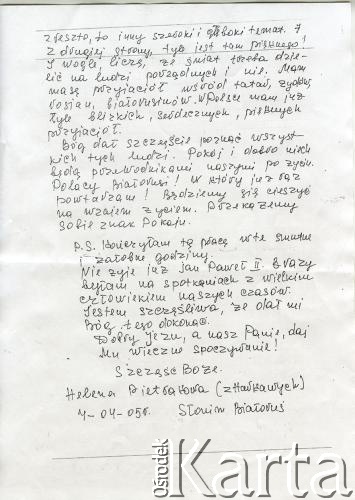 zresztą, to inny szeroki i głęboki temat. 7
Z drugiej strony, tyle jest tam pięknego!
I wogle liczę, że świat trzeba dzie-
lić na ludzi porządnych i nie. Mam
masę przyjaciół wśród Tatar, Żydów,
Rosjan, Białorusinów. W Polsce mam już
tyle bliskich, serdecznych, pięknych
przyjaciół.
Bóg dał szczęście poznać wszyst-
kich tych ludzi. Pokój i dobro niech
będą przewodnikami naszymi po życiu.
Polacy Białorusi! W który już raz
powtarzam! Będziemy się cieszyć
na wzajem życiem. Przekażemy
sobie znak Pokoju.
P.S. tą pracę w te smutne
i żałobne godziny.
Nie żyje już Jan Paweł II. 3 razy
byłam na spotkaniach z wielkim
człowiekiem naszych czasów.
Jestem szczęśliwa, że dał mi
Bóg tego
Dobry Jezu, a nasz Panie, daj
Mu wieczne spoczywanie!
Szczęść Boże.
Helena Pietrakowa
7-04-05r. Słonim Białoruś
ośrodek
Karta